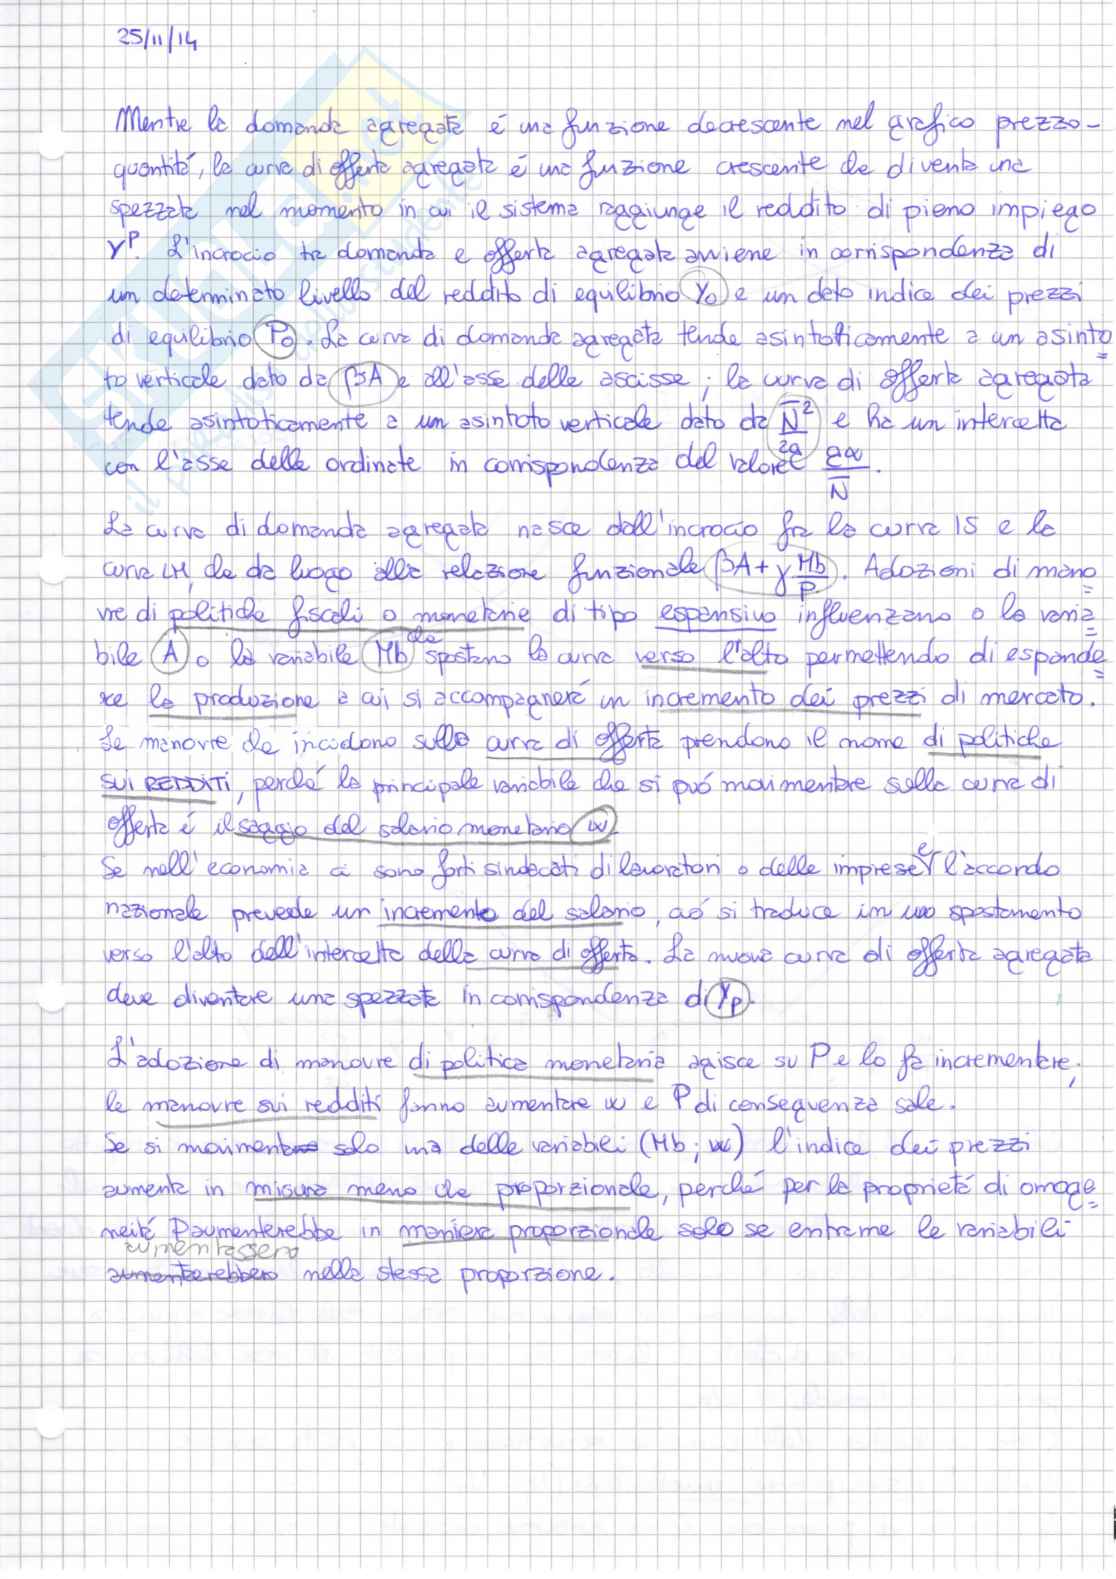 25/11/14
Mentre la domanda agregata é una funzione decrescente nel grafico prezzo-
quantitá, la curva di offerta agregata é una funzione crescente che diventa una
spezzata nel momento in cui il sistema raggiunge il reddito di pieno impiego
Yᴾ. L'incrocio tra domanda e offerta agregata avviene in corrispondenza di
un determinato livello del reddito di equilibrio Y₀ e un dato indice dei prezzi
di equilibrio P₀. La curva di domanda agregata tende asintoticamente a un asinto
to verticale dato da βA e all'asse delle ascisse; la curva di offerta agregata
tende asintoticamente a un asintoto verticale dato da N̅²/2a e ha un intercetta
con l'asse delle ordinate in corrispondenza del valore
La curva di domanda agregata nasce dall'incrocio fra la curva IS e la
curva LM, che da luogo alla relazione funzionale βA+γ Mb/P. Adozioni di mano
vre di politiche fiscali o monetarie di tipo espansivo influenzano o la varia
bile A o la variabile Mb che spostano la curva verso l'alto permettendo di espande
re la produzione a cui si accompagnerá un incremento dei prezzi di mercato.
Le manovre che incidono sulla curva di offerta prendono il nome di politiche
SUI REDDITI, perché la principale variabile che si puó movimentare sulla curva di
offerta é il saggio del salario monetario w.
Se nell'economia ci sono forti sindacati di lavoratori o delle imprese e l'accordo
nazionale prevede un incremento del salario, ció si traduce in uno spostamento
verso l'alto dell'intercetta della curva di offerta. La nuova curva di offerta agregata
deve diventare una spezzata in corrispondenza di Yp.
L'adozione di manovre di politica monetaria agisce su P e lo fa incrementare;
le manovre sui redditi fanno aumentare w e P di conseguenza sale.
Se si movimenta solo una delle variabili (Mb; w) l'indice dei prezzi
aumenta in misura meno che proporzionale, perché per la proprietá di omoge
neitá P aumenterebbe in maniera proporzionale solo se entrame le variabili
aumentassero
aumenterebbero nella stessa proporzione.